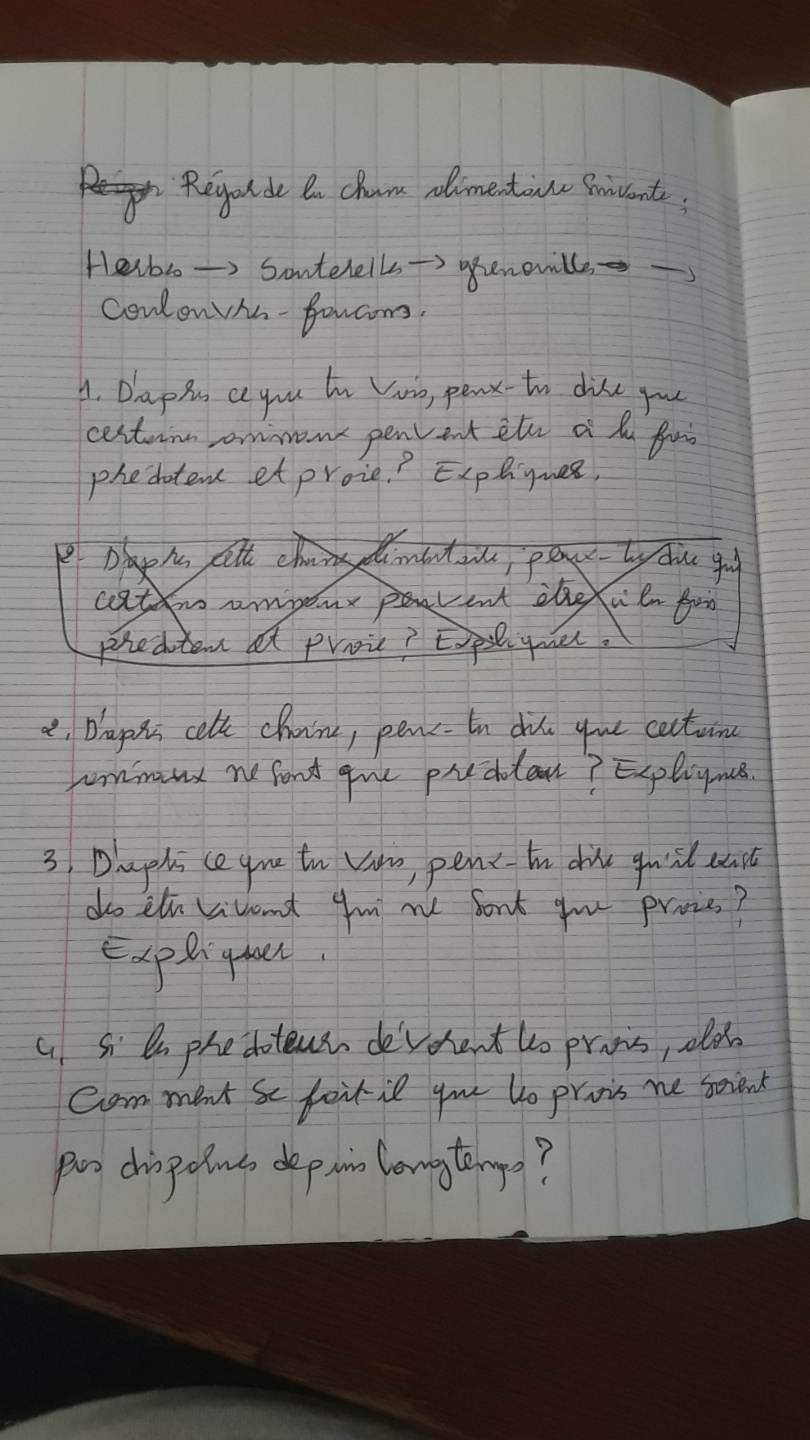 Régarde la chaine alimentaire Suivante ;
Herbes → Sauterelles → grenouilles →
Coulouvres - foucons.
1. D'après ce que tu vois, peux-tu dire que
certains animaux peuvent être à la fois
prédateur et proie ? Expliquer.
2- D'après cette chaine alimentaire, peux-tu dire que
certains animaux peuvent être à la fois
prédateur et proie ? Expliquer.
2. D'après cette chaine, peux-tu dire que certains
animaux ne sont que prédateur ? Expliquer.
3. D'après ce que tu vois, peux-tu dire qu'il existe
des être vivant qui ne sont que proies ?
Expliquer.
4. Si les prédateurs dévorent les proies, alors
Comment se fait-il que les proies ne soient
pas disparues depuis longtemps ?